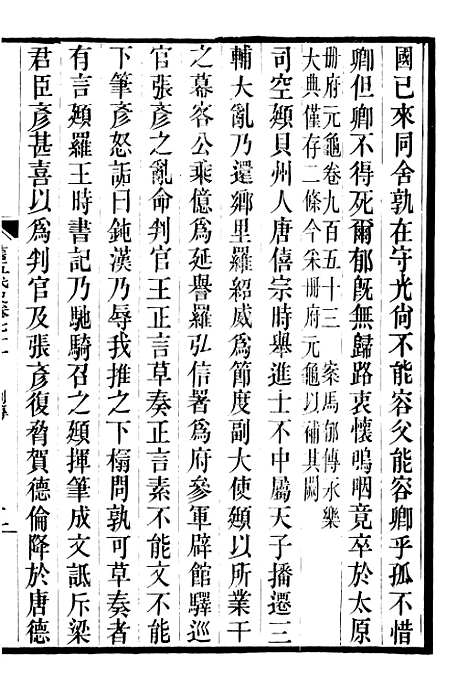 國已來同舍孰在守光尙不能容父能容卿乎孤不惜
卿但卿不得死爾郁旣無歸路衷懷嗚咽竟卒於太原
冊府元龜卷九百五十三　案馬郁傳永樂
大典僅存二條今采冊府元龜以補其闕
司空頲貝州人唐僖宗時舉進士不中屬天子播遷三
輔大亂乃還鄉里羅紹威爲節度副大使頲以所業干
之幕客公乘億爲延譽羅弘信署爲府參軍辟館驛巡
官張彥之亂命判官王正言草奏正言素不能文不能
下筆彥怒詬曰鈍漢乃辱我推之下榻問孰可草奏者
有言頲羅王時書記乃馳騎召之頲揮筆成文詆斥梁
君臣彥甚喜以爲判官及張彥復脅賀德倫降於唐德